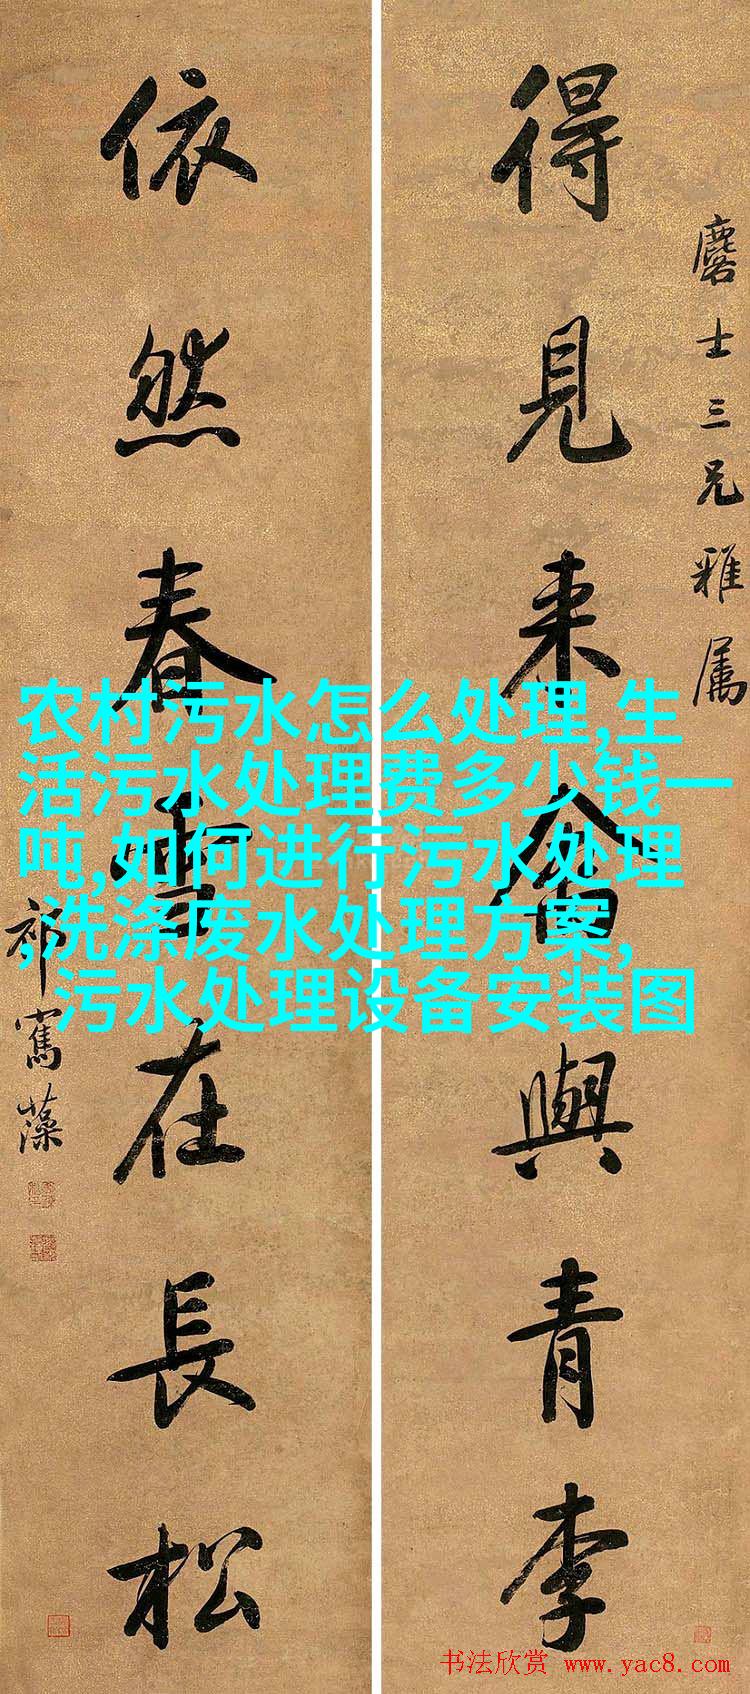 麐士三兄雅属
得見来禽與青李
依然春雪在長松
祁寯藻
农村污水怎么处理,生
活污水处理费多少钱一
吨,如何进行污水处理
,洗涤废水处理方案,
污水处理设备安装图
书法欣赏 www.yac8.com